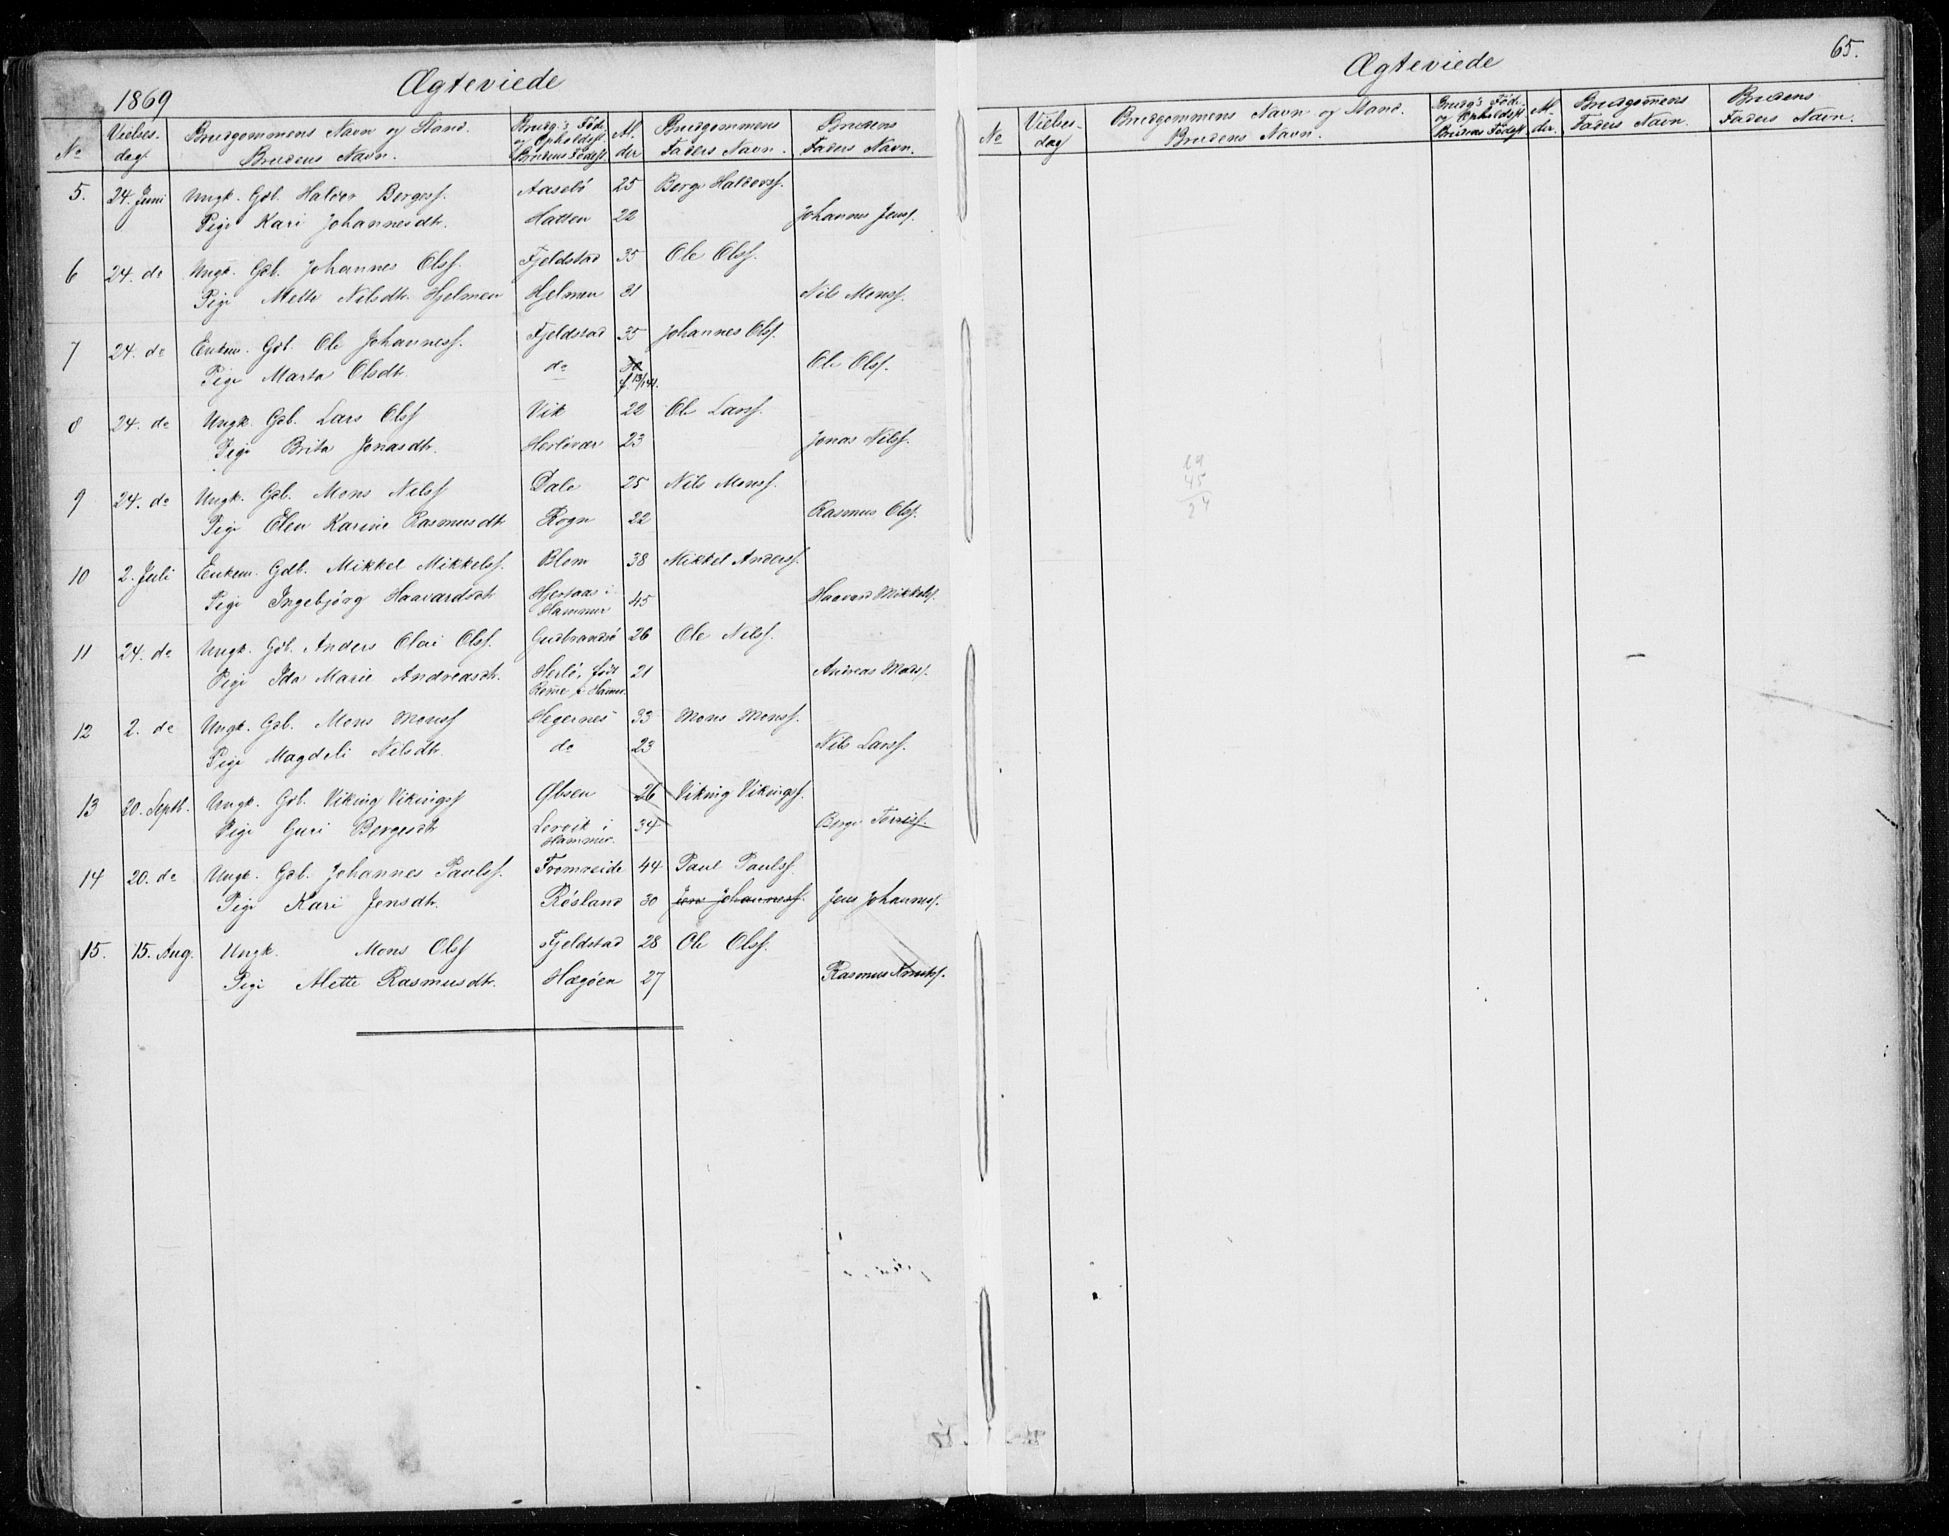 1869 Ægteviede
No Vielses-dag Brudgommens Navn og Stand. Brudens Navn. Brudg's Føds. og Opholdsst. Brudens Fødest. Al-der Brudgommens Faders Navn. Brudens Faders Navn.
5. 24. Juni Ungk. Gdb. Haldor Bergesf. Aasebö 25 Berge Haldorsf.
Pige Kari Johannesdtr. Hatten 22 Johannes Jensf.
6 24. do Ungk. Gdb. Johannes Olsf. Fjeldstad 35 Ole Olsf.
Pige Mette Nilsdtr. Hjelmen Hjelmen 31 Nils Monsf.
7 24. do Enkem. Gdb. Ole Johannesf. Fjeldstad 35 Johannes Olsf.
Pige Marta Olsdtr. do Ole Olsf.
8 24. do Ungk. Gdb. Lars Olsf Vik 22 Ole Larsf.
Pige Brita Jonasdtr. Herlövær 23 Jonas Nilsf.
9 24. do Ungk. Gdb. Mons Nilsf Dale 25 Nils Monsf.
Pige Elen Karine Rasmusdtr Rogn 22 Rasmus Olsf.
10 2. Juli Enkem. Gdb. Mikkel Mikkelsf. Blom 38 Mikkel Andersf.
Pige Ingebjörg Haavardsdtr Hjertaas i Hammer 45 Haavard Mikkelsf.
11 24. do Ungk. Gdb. Anders Olai Olsf. Gudbrandsö 26 Ole Nilsf.
Pige Ida Marie Andreasdtr. Herlö, født 21 Andreas Madsf.
12 2. do Ungk. Gdb. Mons Monsf Hegernes 33 Mons Monsf.
Pige Magdeli Nilsdtr. do 23 Nils Larsf.
13 20. Septb. Ungk. Gdb. Viking Vikingsf Øbsen 26 Viking Vikingsf.
Pige Guri Bergesdtr Lervik i Hammer 34 Berge Torrisf.
14 20. do Ungk. Gdb. Johannes Paulsf. Fromreide 44 Paul Paulsf.
Pige Kari Jensdtr. Røsland 30 Jens Johannesf. Jens Johannesf.
15. 15. Aug. Ungk. Mons Olsf Fjeldstad 28 Ole Olsf.
Pige Mette Rasmusdtr. Hægöen 27 Rasmus Knutsf.
Ægteviede 65.
No Vielses-dag Brudgommens Navn og Stand. Brudens Navn. Brudg's Føds. og Opholdsst. Brudens Fødest. Al-der. Brudgommens Faders Navn. Brudens Faders Navn.
69
45
24